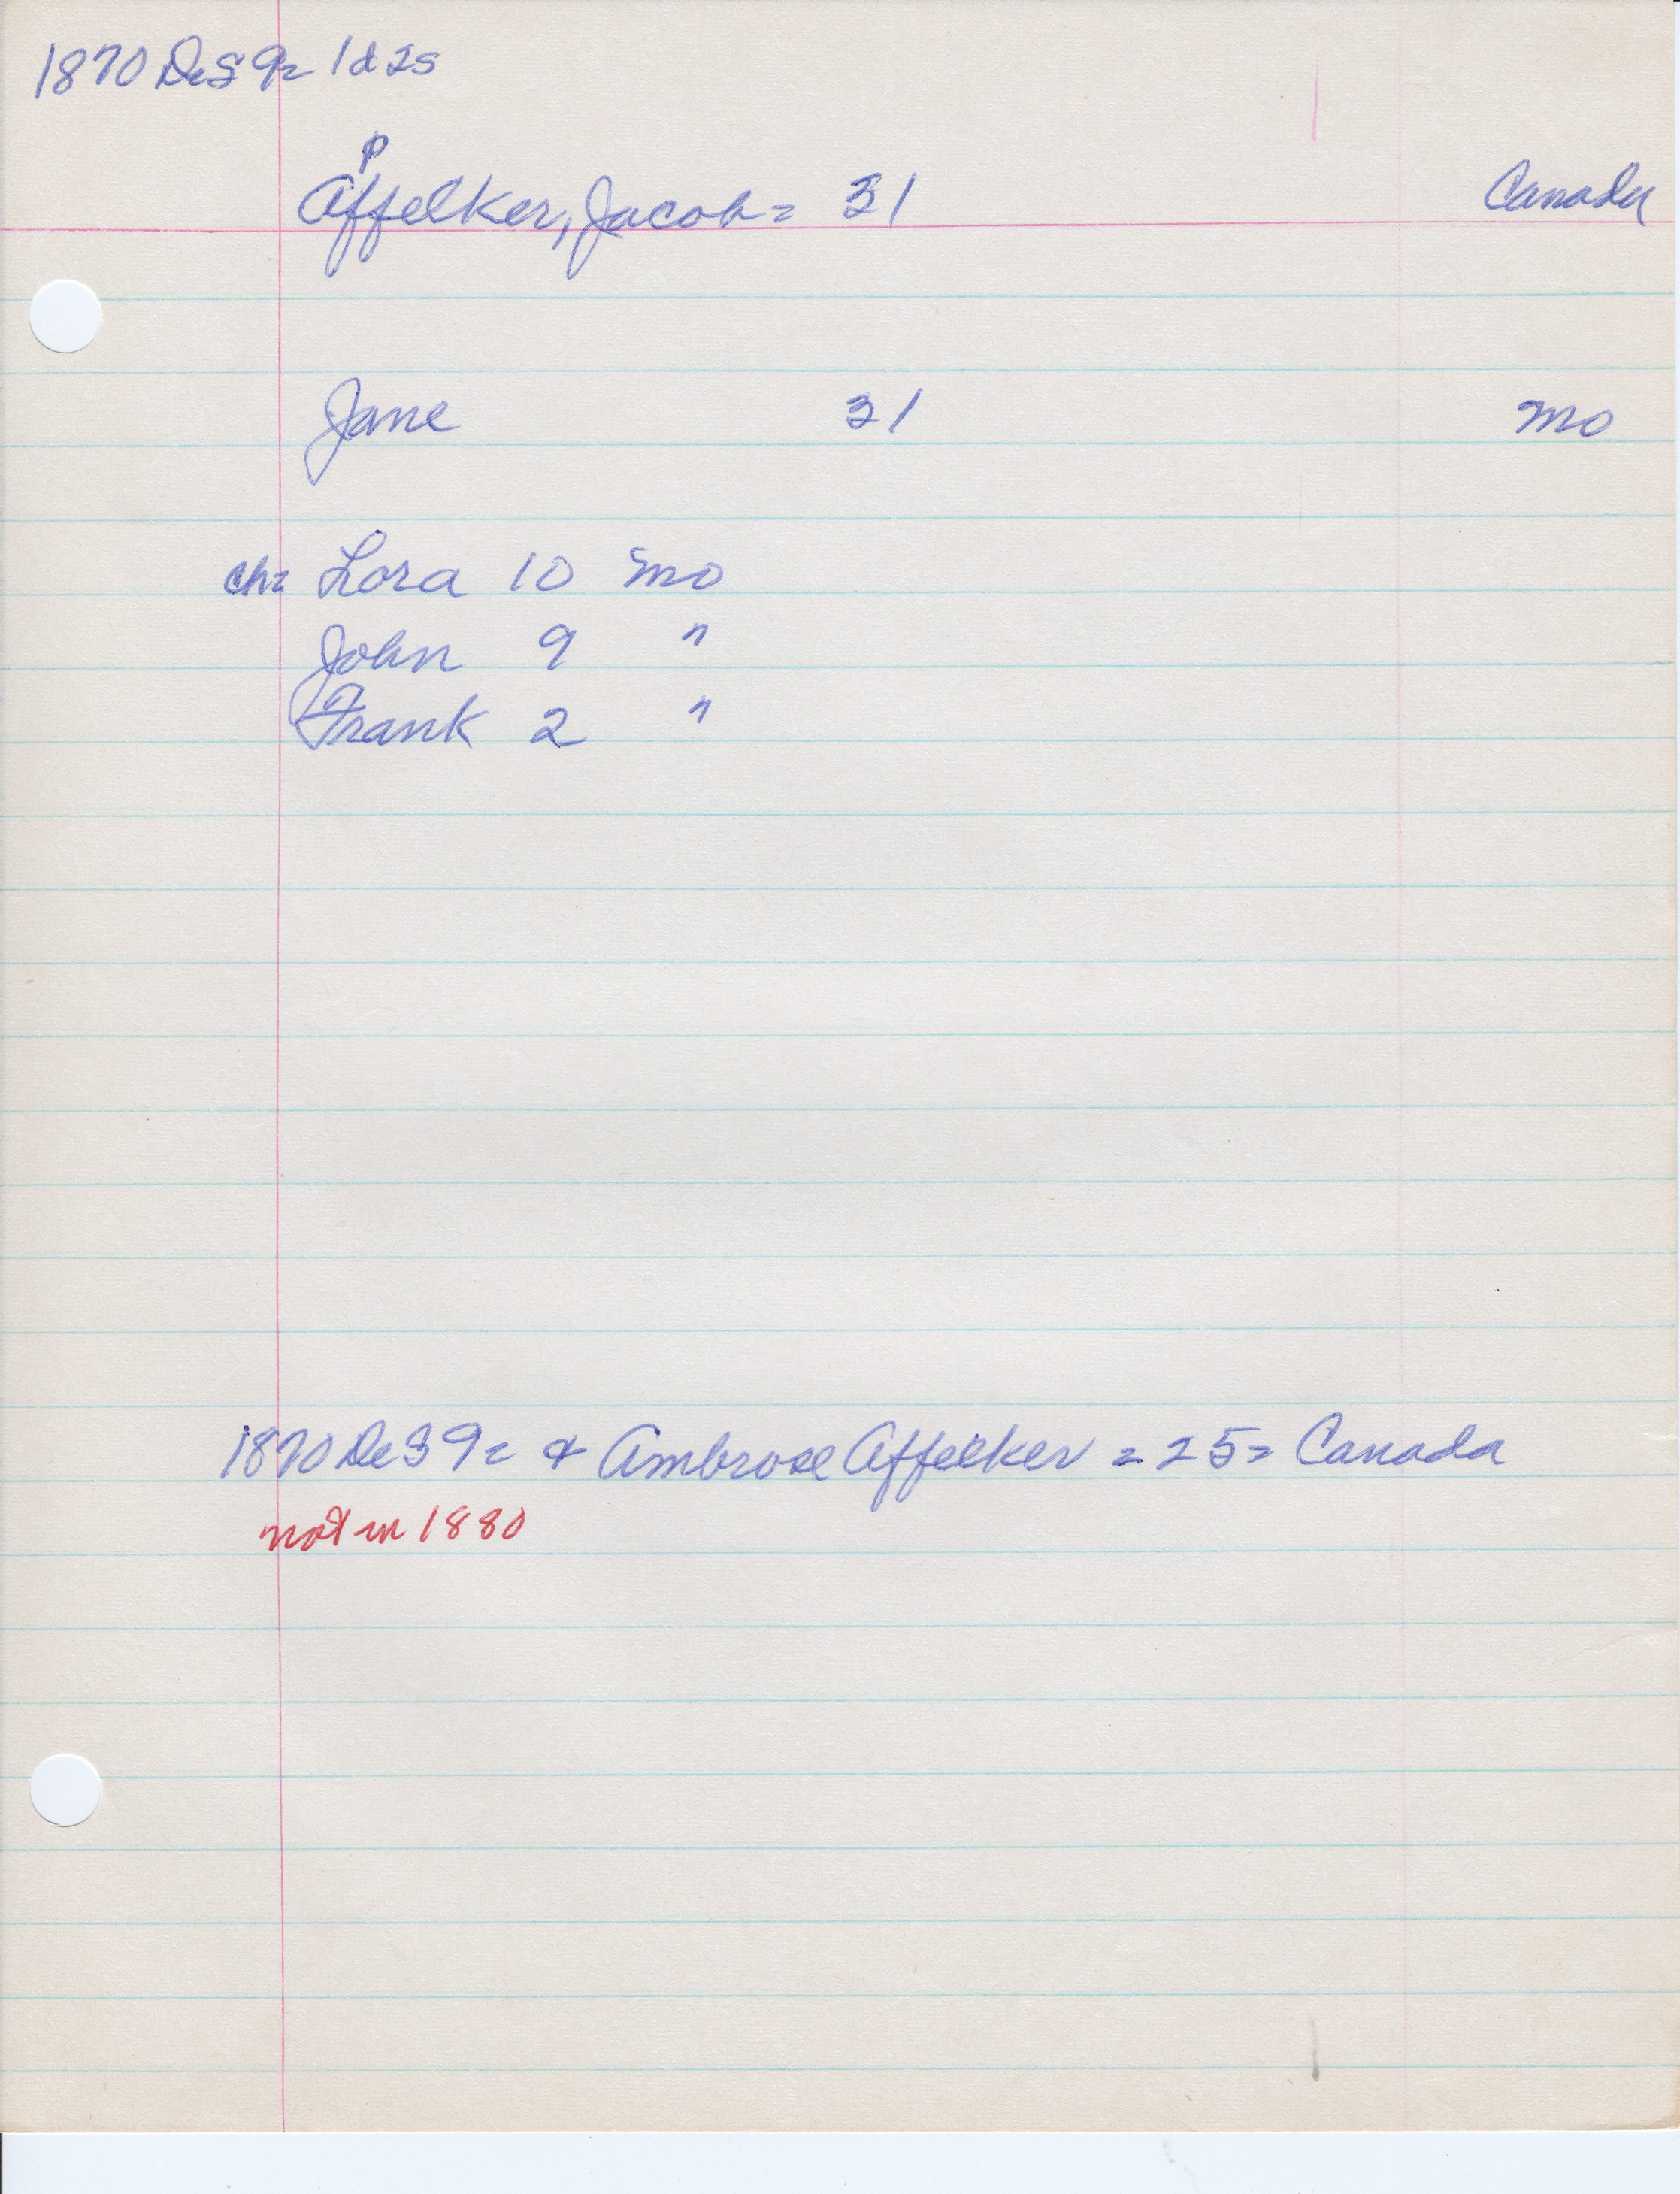 1870 DeS 9= 1d 2s
p
Affelker, Jacob = 31 Canada
Jane 31 mo
ch= Lora 10 mo
John 9 "
Frank 2 "
1870 DeS 9= & Ambrose Affelker = 25= Canada
not in 1880